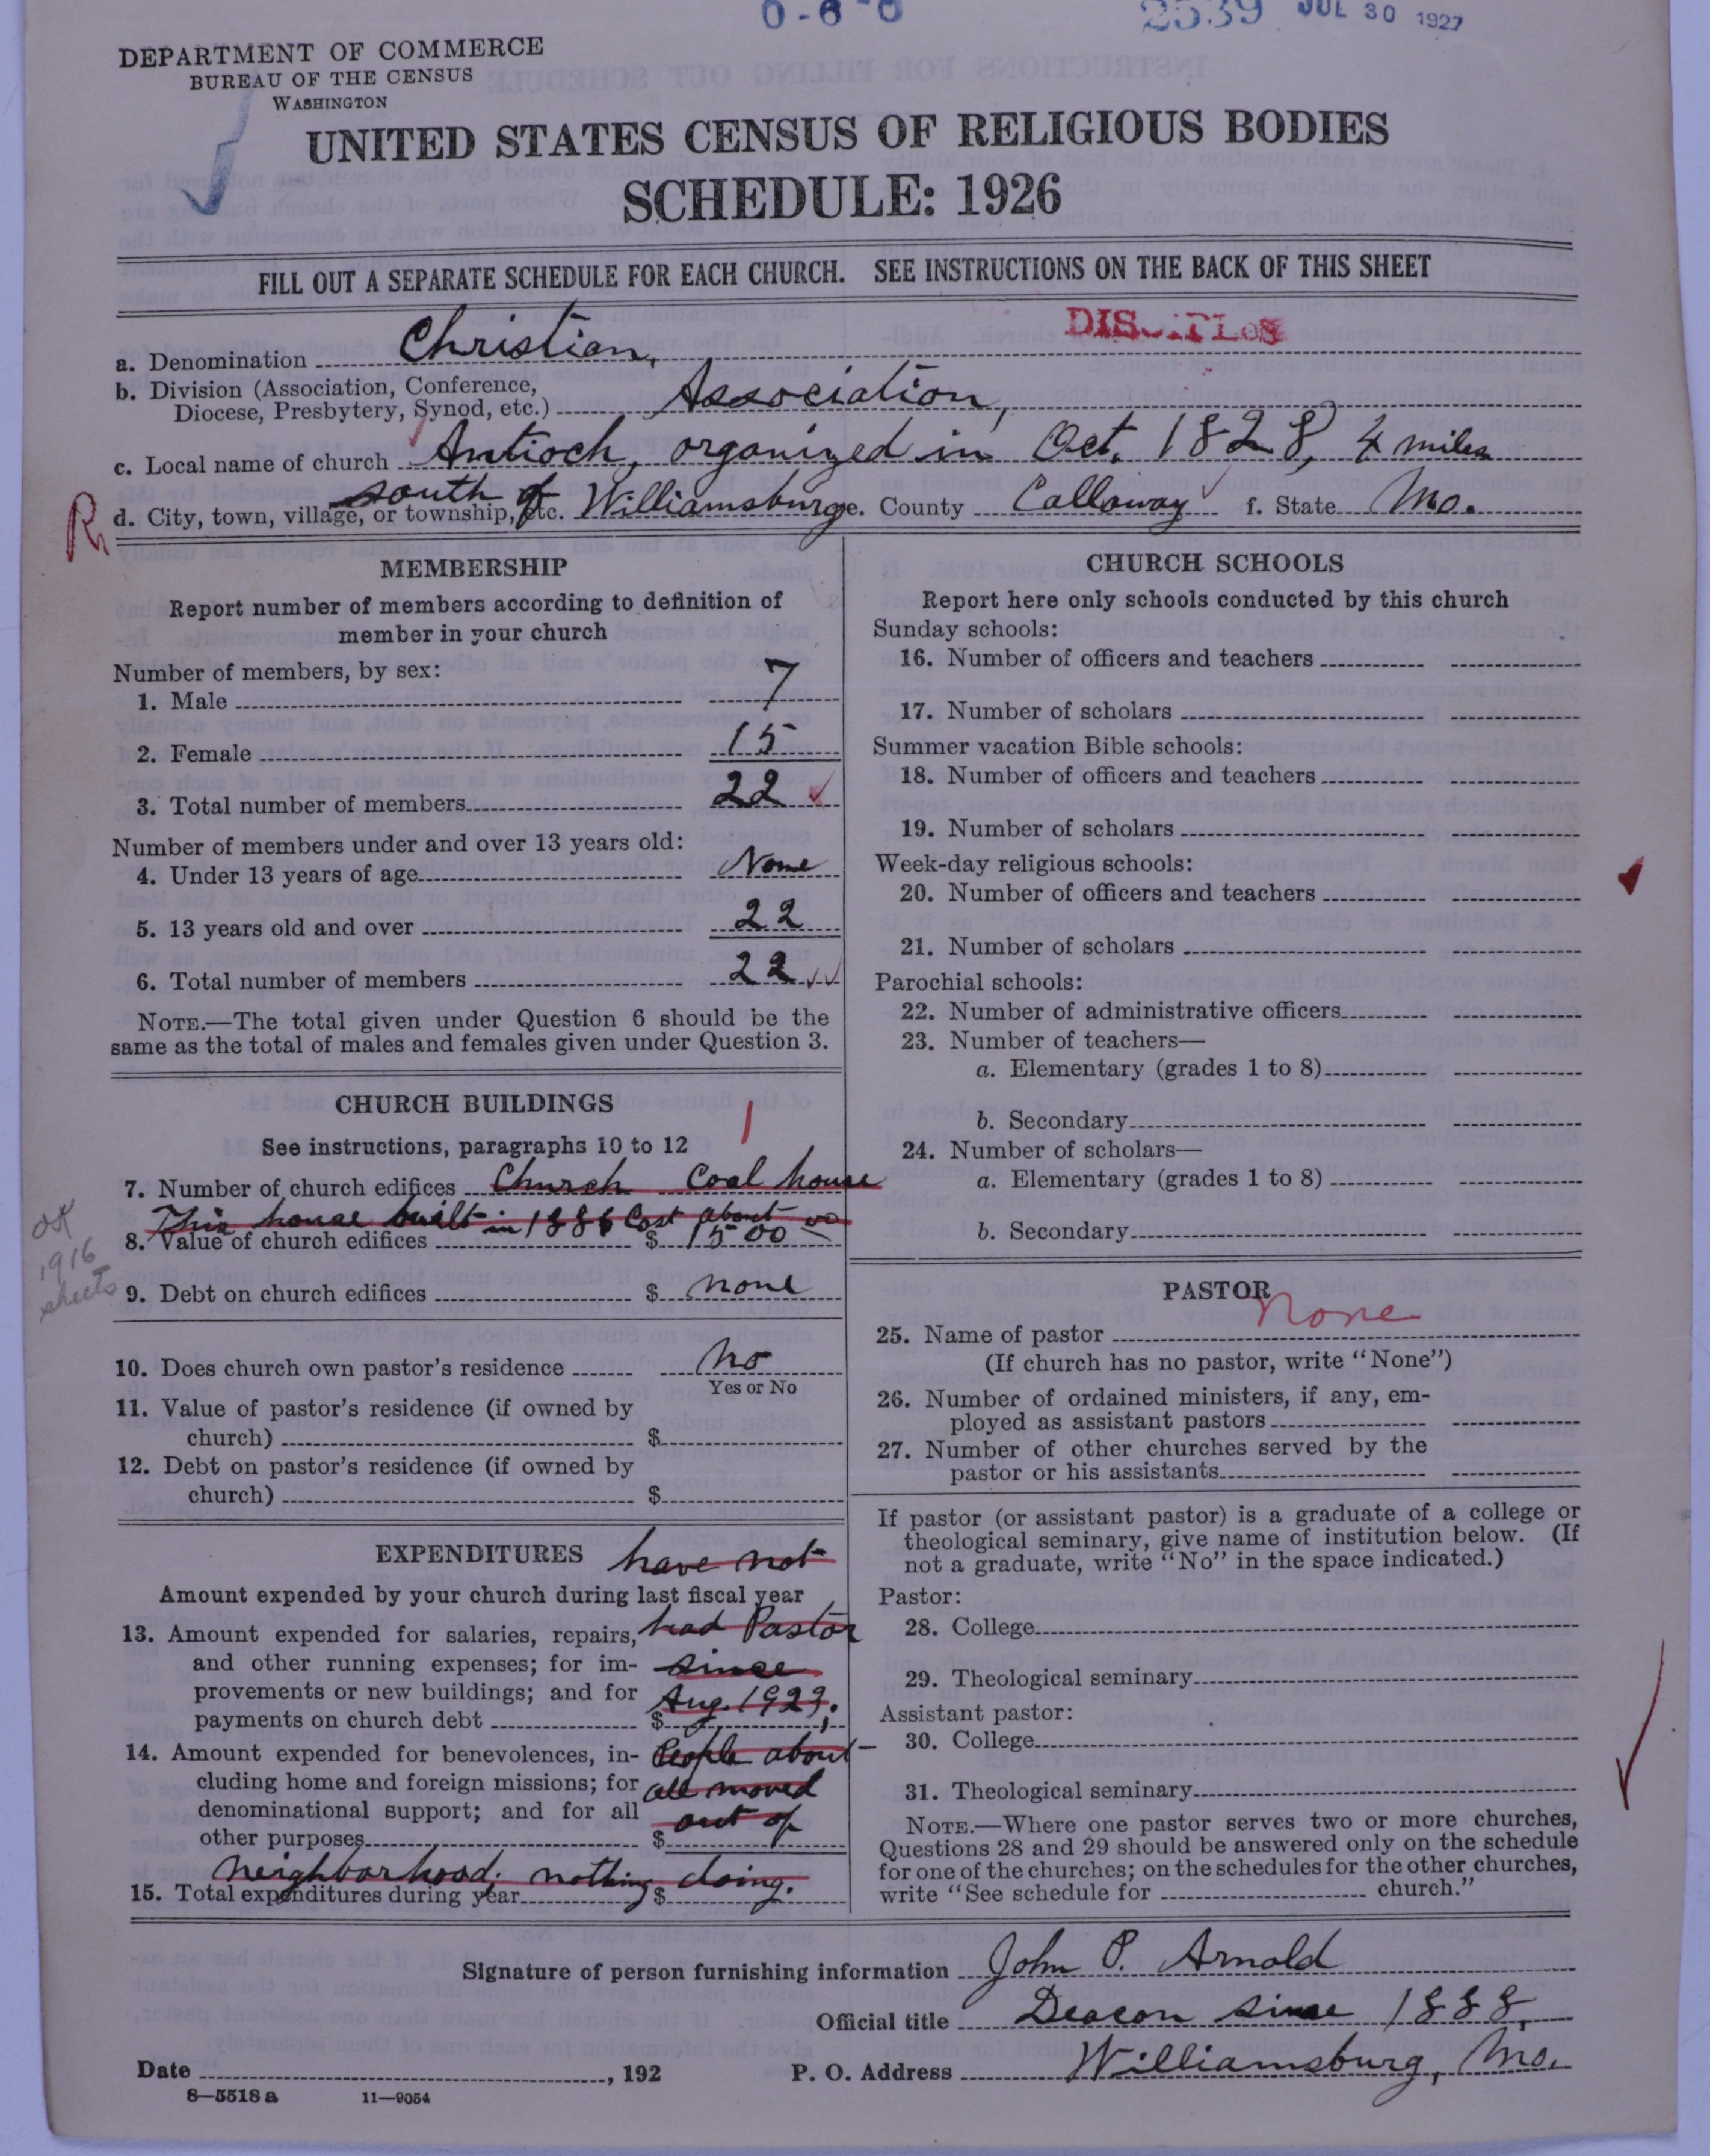 0-6-0 2539 JUL 30 1927
DEPARTMENT OF COMMERCE
BUREAU OF THE CENSUS
WASHINGTON
UNITED STATES CENSUS OF RELIGIOUS BODIES
SCHEDULE: 1926
FILL OUT A SEPARATE SCHEDULE FOR EACH CHURCH. SEE INSTRUCTIONS ON THE BACK OF THIS SHEET
a. Denomination Christian,
b. Division (Association, Conference,
Diocese, Presbytery, Synod, etc.) Association,
c. Local name of church Antioch, organized in Oct. 1828, 4 miles
south of
R d. City, town, village, or township, etc. Williamsburg e. County Callaway f. State Mo.
MEMBERSHIP
Report number of members according to definition of
member in your church
Number of members, by sex:
1. Male 7
2. Female 15
3. Total number of members 22
Number of members under and over 13 years old:
4. Under 13 years of age None
5. 13 years old and over 22
6. Total number of members 22
NOTE.—The total given under Question 6 should be the
same as the total of males and females given under Question 3.
CHURCH BUILDINGS
See instructions, paragraphs 10 to 12 1
7. Number of church edifices Church Coal house
This house built in 1886 Cost about
8. Value of church edifices $ 1500 00
OK
1916
sheets
9. Debt on church edifices $ none
10. Does church own pastor's residence No
Yes or No
11. Value of pastor's residence (if owned by
church) $
12. Debt on pastor's residence (if owned by
church) $
EXPENDITURES have not
Amount expended by your church during last fiscal year
13. Amount expended for salaries, repairs, had Pastor
and other running expenses; for im- since
provements or new buildings; and for Aug. 1923;
payments on church debt $
14. Amount expended for benevolences, in- People about
cluding home and foreign missions; for all moved
denominational support; and for all out of
other purposes $
neighborhood; nothing doing.
15. Total expenditures during year $
CHURCH SCHOOLS
Report here only schools conducted by this church
Sunday schools:
16. Number of officers and teachers
17. Number of scholars
Summer vacation Bible schools:
18. Number of officers and teachers
19. Number of scholars
Week-day religious schools:
20. Number of officers and teachers
21. Number of scholars
Parochial schools:
22. Number of administrative officers
23. Number of teachers—
a. Elementary (grades 1 to 8)
b. Secondary
24. Number of scholars—
a. Elementary (grades 1 to 8)
b. Secondary
PASTOR
25. Name of pastor None
(If church has no pastor, write "None")
26. Number of ordained ministers, if any, em-
ployed as assistant pastors
27. Number of other churches served by the
pastor or his assistants
If pastor (or assistant pastor) is a graduate of a college or
theological seminary, give name of institution below. (If
not a graduate, write "No" in the space indicated.)
Pastor:
28. College
29. Theological seminary
Assistant pastor:
30. College
31. Theological seminary
NOTE.—Where one pastor serves two or more churches,
Questions 28 and 29 should be answered only on the schedule
for one of the churches; on the schedules for the other churches,
write "See schedule for church."
Signature of person furnishing information John P. Arnold
Official title Deacon since 1888,
Date , 192 P. O. Address Williamsburg, Mo.
8—5518 a 11—9054